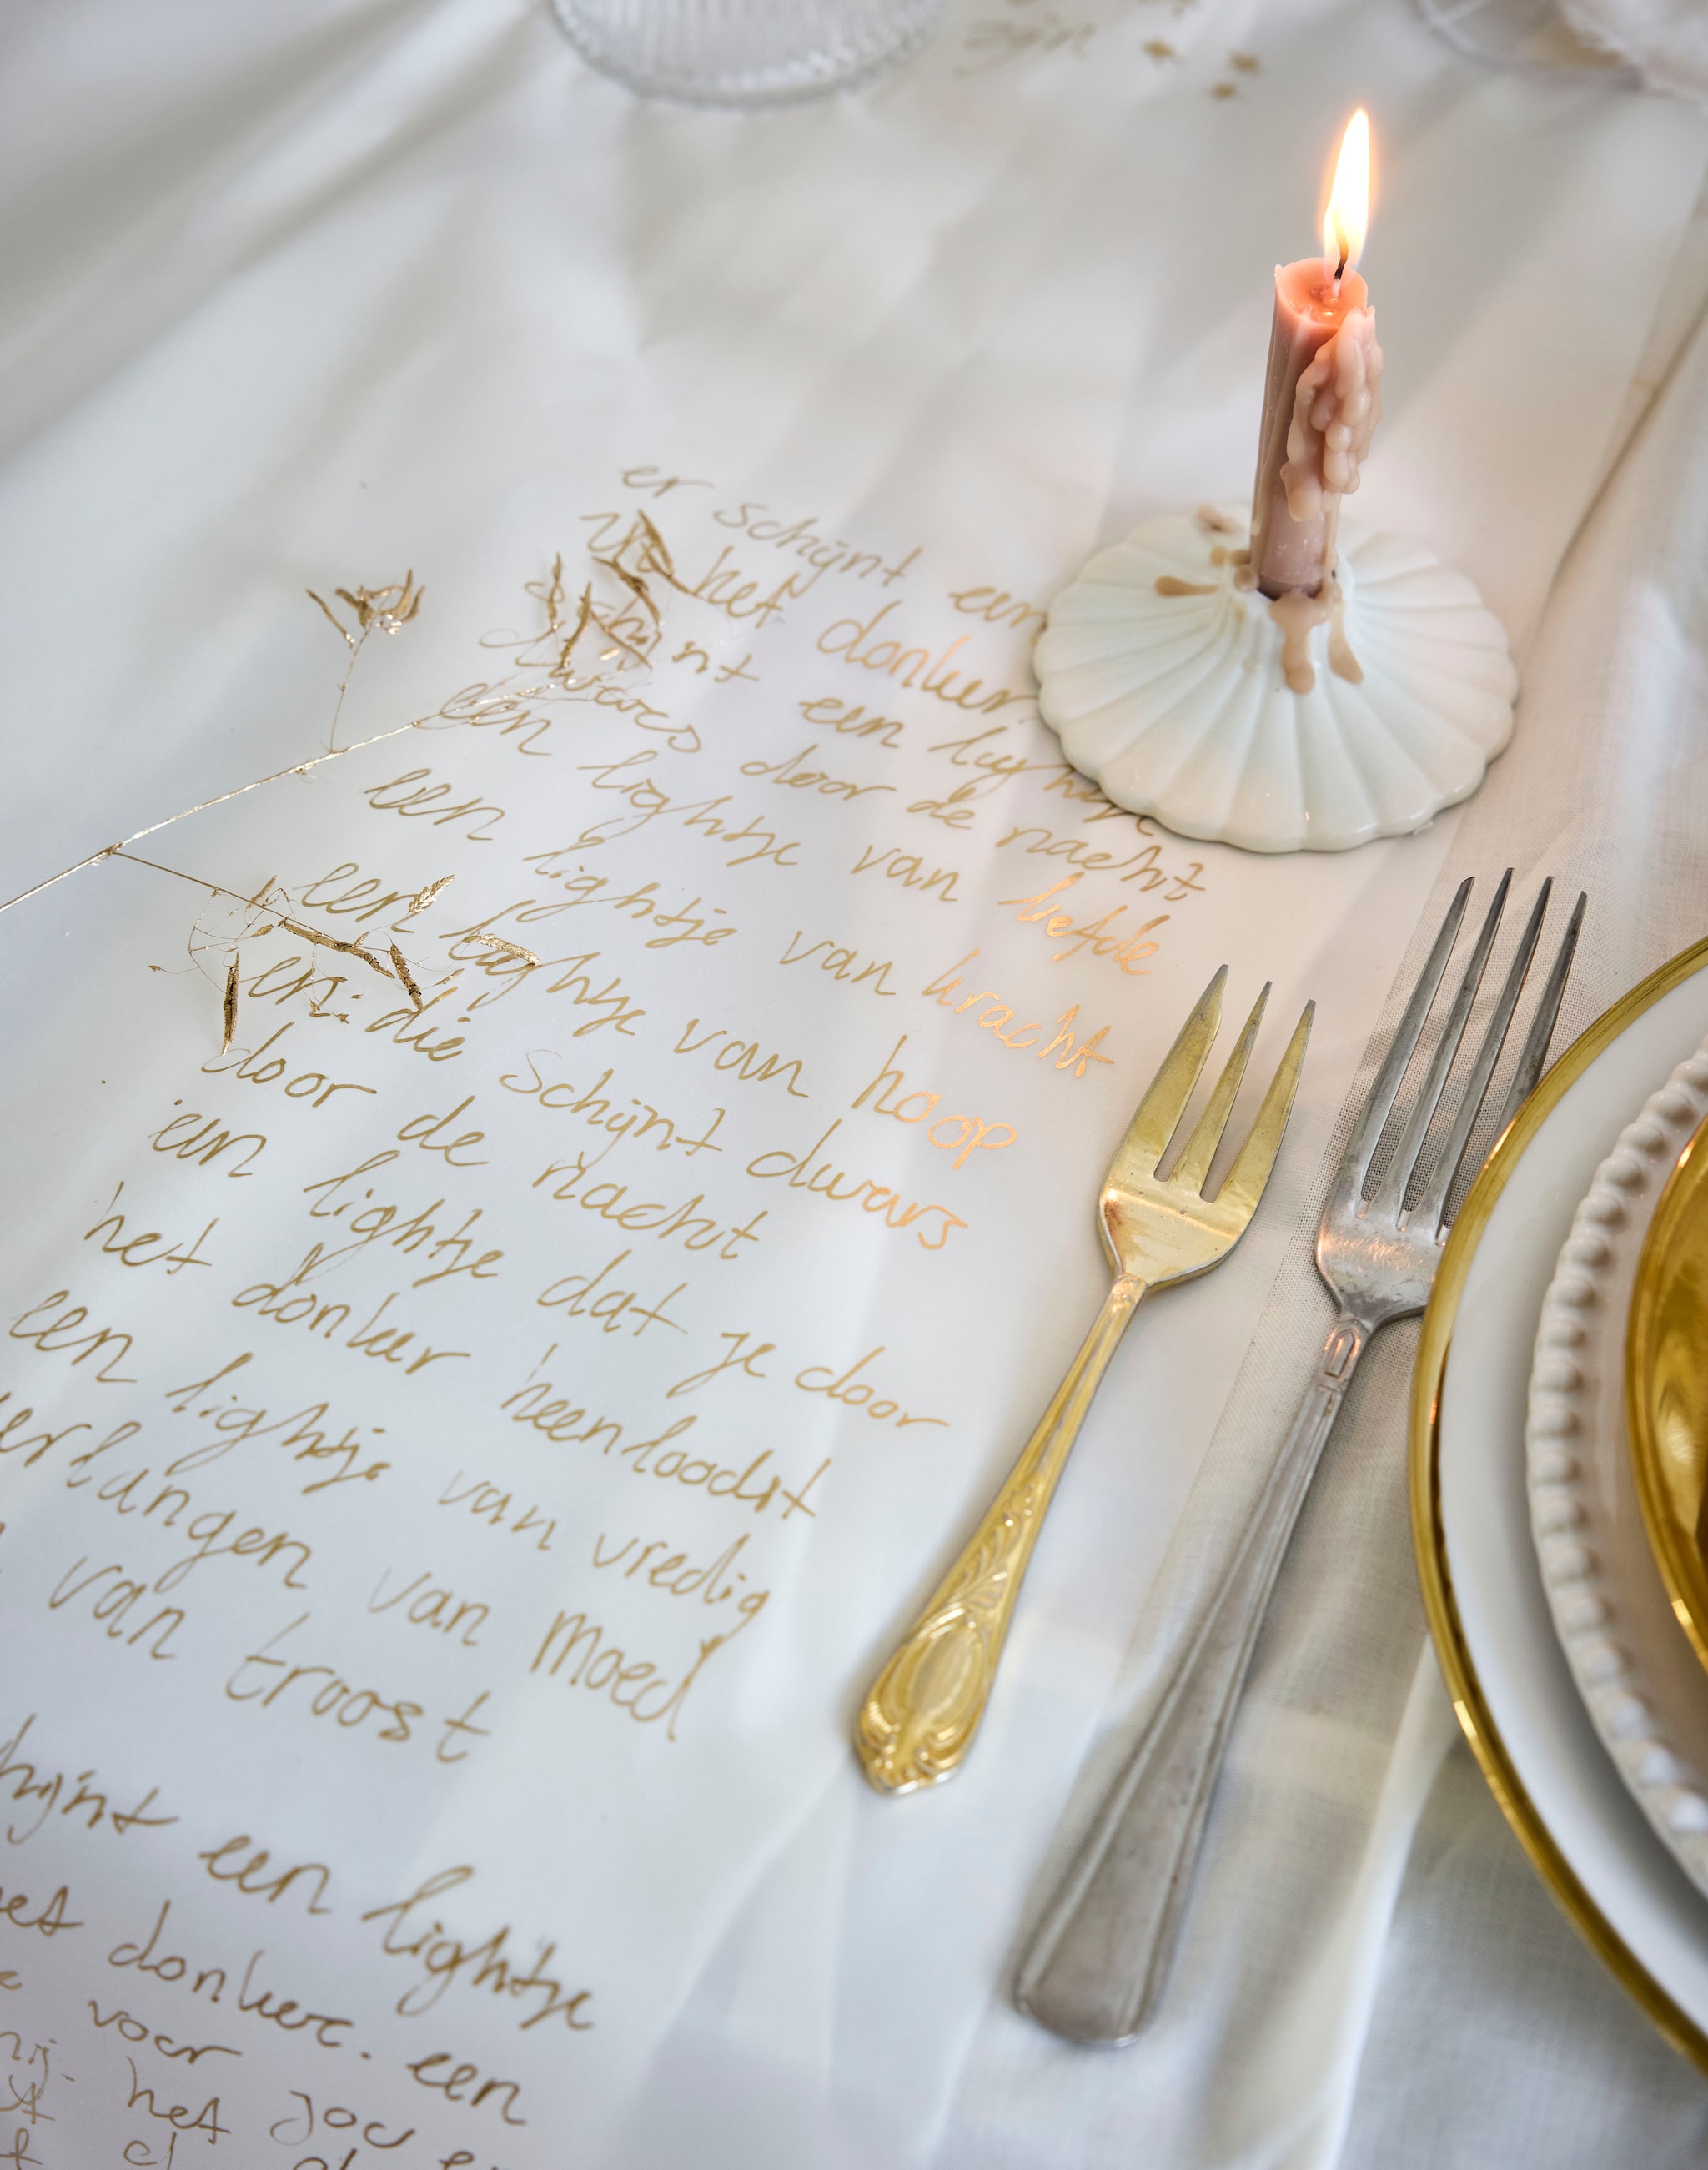 zijn
er schijnt een
uit het donker
schijnt een lichtje
dwars door de nacht
een lichtje van liefde
een lichtje van kracht
een lichtje van hoop
en: die schijnt dwars
door de nacht
een lichtje dat je door
het donker heenloodst
een lichtje van vredig
erlangen van moed
van troost
hijnt een lichtje
et donker. een
voor
het jou